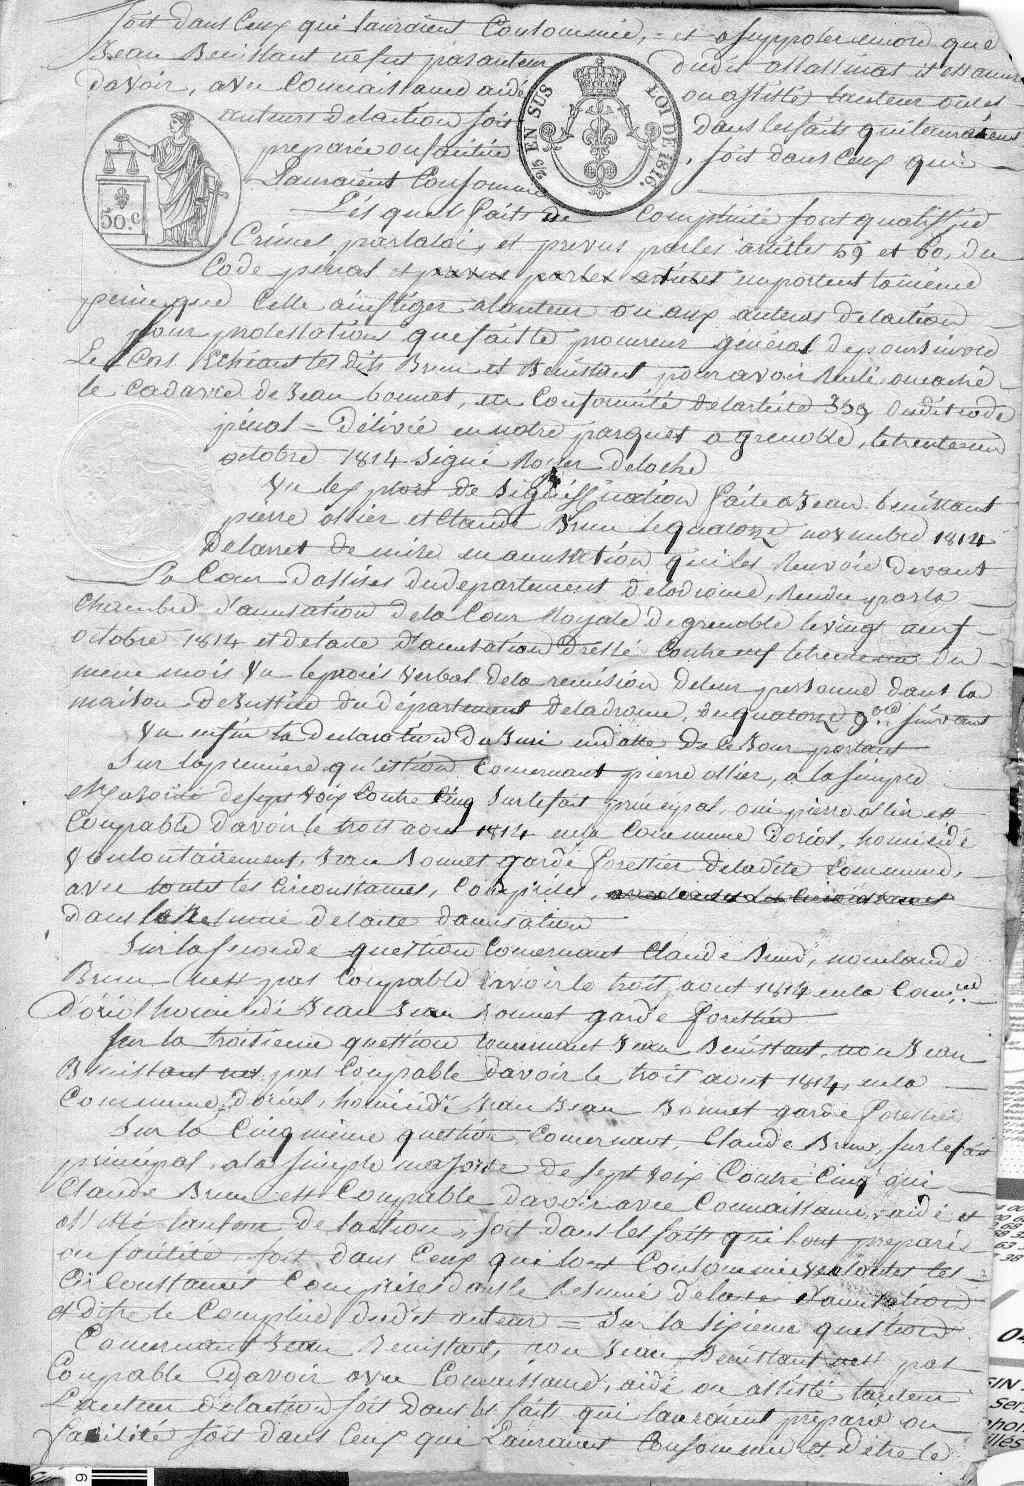 soit dans Ceux qui lauraient Consommée, = et a supposer encore que
Jean Benistant ne fut pas auteur dudit assassinat il est accusé
davoir, avec Connaissance aidé ou assisté lauteur ou les
auteurs delaction soit dans les faits qui lauraient
preparée ou facilitée, soit dans Ceux qui
Lauraient Consommée
25 EN SUS
LOI DE 1816.
50. c
Lesquels faits de Complicité sont qualiffiés
Crimes par la loi, et prevus par les articles 59 et 60, du
Code pénal et prevus par les articles emportent la même
peine que Celle a infliger a lauteur ou aux auteurs delaction
pour protestations que fait le procureur general de poursuivre
Le Cas Echéant les dits Brun et Benistant pour avoir recelé ou caché
le cadavre de Jean bonnet, en Conformité delarticle 359 dudit code
pénal = Délivré en notre parquet a grenoble, le trente un
octobre 1814 Signé Royer deloche
Vu lexploit de Signiffication faite a Jean benistant
pierre ollier et Claude Brun le quatorze novembre 1814
Delarret de mise en accusation qui les Renvoie devant
La Cour dassises du departement deladrome, Rendu par la
Chambre d'accusation dela Cour Royale de grenoble le vingt neuf
octobre 1814 et delacte d'accusation Dressé Contre eux le trente un du
meme mois Vu le procès verbal dela remission deleur personne dans la
maison deJustice du département deladrome, du quatorze 9bre suivant
Vu enfin la declaration du Juri en datte de ce Jour portant
Sur la premiere qu'estion Concernant pierre ollier, a la simple
Majorité de sept voix Contre Cinq Sur le fait principal, oui pierre ollier est
Coupable davoir le trois aout 1814 en la Commune Doriol, homicidé
volontairement, Jean Bonnet garde forestier deladite Commune,
avec toutes les Circonstances, Comprises, avec toutes les Circonstances
dans le Resumé delacte daccusation
Sur la seconde question Concernant Claude Brun, non Claude
Brun n'est pas Coupable davoir le trois aout 1814 en la Commune
D'oriol homicidé Jean Jean Bonnet garde forestier
Sur la troisieme question Concernant Jean Benistant, non Jean
Benistant nest pas Coupable davoir le trois aout 1814, en la
Commune, doriol, homicidé Jean Jean Bonnet garde forestier
Sur la Cinquieme question, Concernant, Claude Brun, sur le fait
principal, a la simple majorité de sept voix Contre Cinq oui
Claude Brun est Coupable davoir avec Connaissance, aidé et
assisté lauteur de laction, soit dans les faits qui lont preparée
ou facilitée, soit dans Ceux qui lont Consommée avec toutes les
Circonstances Comprises dans le Resumé delacte d'accusation
et dêtre le Complice dudit auteur = Sur la sixieme question
Concernant Jean Benistant, non Jean, Benistant nest pas
Coupable Davoir avec Connaissance, aidé ou assisté lauteur
Lauteur delaction soit dans les faits qui lauraient preparée ou
facilitée soit dans Ceux qui Lauraient Consommée et d'être le